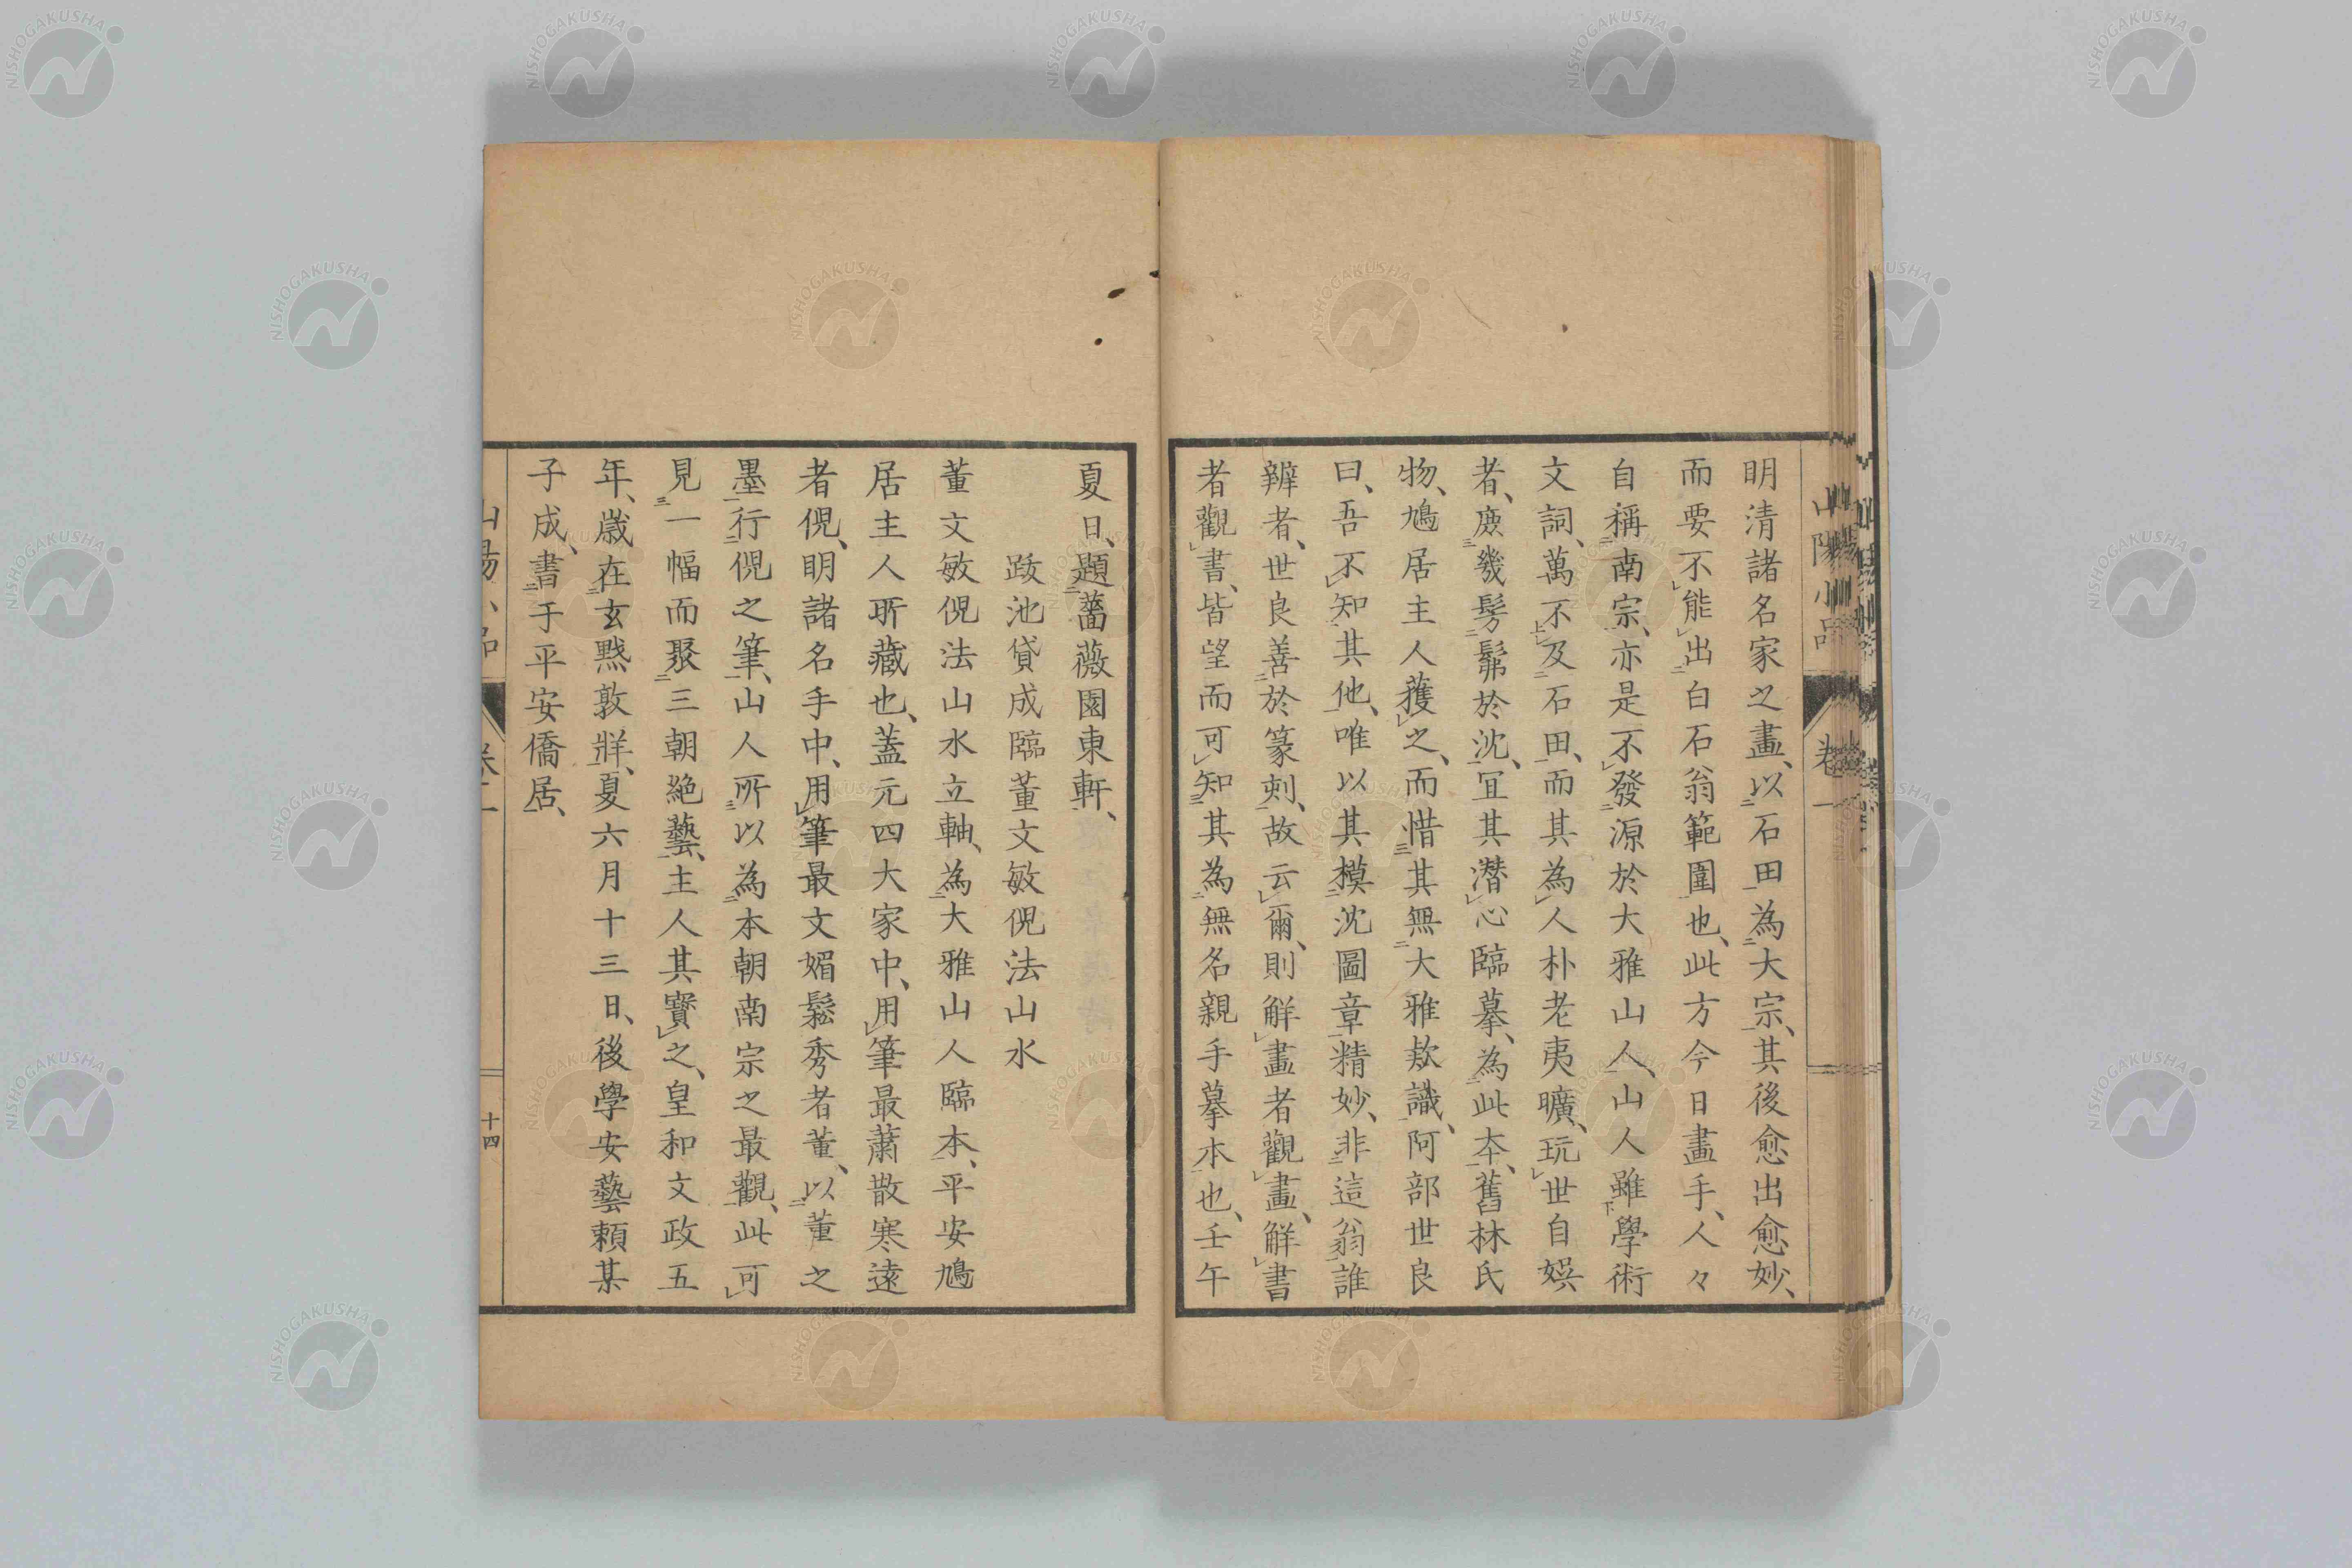 明清諸名家之畫、以石田為大宗、其後愈出愈妙、
而要不能出白石翁範圍也、此方今日畫手、人々
自稱南宗、亦是不發源於大雅山人、山人雖學術
文詞、萬不及石田、而其為人朴老夷曠、玩世自娯
者、庶幾髣髴於沈、宜其潜心臨摹、為此本、舊林氏
物、鳩居主人獲之、而惜其無大雅欵識、阿部世良
曰、吾不知其他、唯以其模沈圖章精妙、非這翁誰
辨者、世良善於篆刻、故云爾、則解畫者觀畫、解書
者觀書、皆望而可知其為無名親手摹本也、壬午
夏日、題薔薇園東軒、
跋池貸成臨董文敏倪法山水
董文敏倪法山水立軸、為大雅山人臨本、平安鳩
居主人所藏也、蓋元四大家中、用筆最蕭散寒遠
者倪、明諸名手中、用筆最文媚鬆秀者董、以董之
墨行倪之筆、山人所以為本朝南宗之最觀、此可
見一幅而聚三朝絶藝、主人其寳之、皇和文政五
年、歳在玄黙敦牂、夏六月十三日、後學安藝頼某
子成、書于平安僑居、
山陽小品
卷
十四
NISHOGAKUSHA